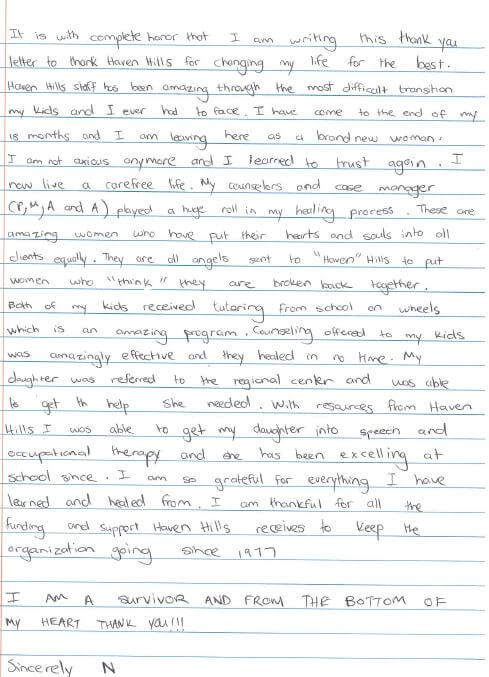 It is with complete honor that I am writing this thank you
letter to thank Haven Hills for changing my life for the best.
Haven Hills staff has been amazing through the most difficult transition
my kids and I ever had to face. I have come to the end of my
18 months and I am leaving here as a brand new woman.
I am not axious anymore and I learned to trust again. I
now live a carefree life. My counselors and case manager
(P, M, A and A) played a huge roll in my healing process. These are
amazing women who have put their hearts and souls into all
clients equally. They are all angels sent to "Haven" Hills to put
women who "think" they are broken back together.
Both of my kids received tutoring from school on wheels
which is an amazing program. Counseling offered to my kids
was amazingly effective and they healed in no time. My
daughter was referred to the regional center and was able
to get th help she needed. With resources from Haven
Hills I was able to get my daughter into speech and
occupational therapy and she has been excelling at
school since. I am so grateful for everything I have
learned and healed from. I am thankful for all the
funding and support Haven Hills receives to keep the
organization going since 1977
I AM A SURVIVOR AND FROM THE BOTTOM OF
MY HEART THANK YOU!!!
Sincerely N